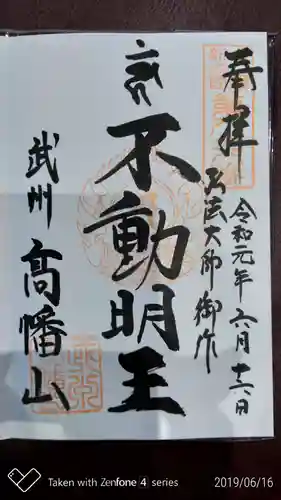 奉拝
令和元年六月十六日
弘法大師御作
不動明王
武州
高幡山
Taken with Zenfone 4 series
2019/06/16